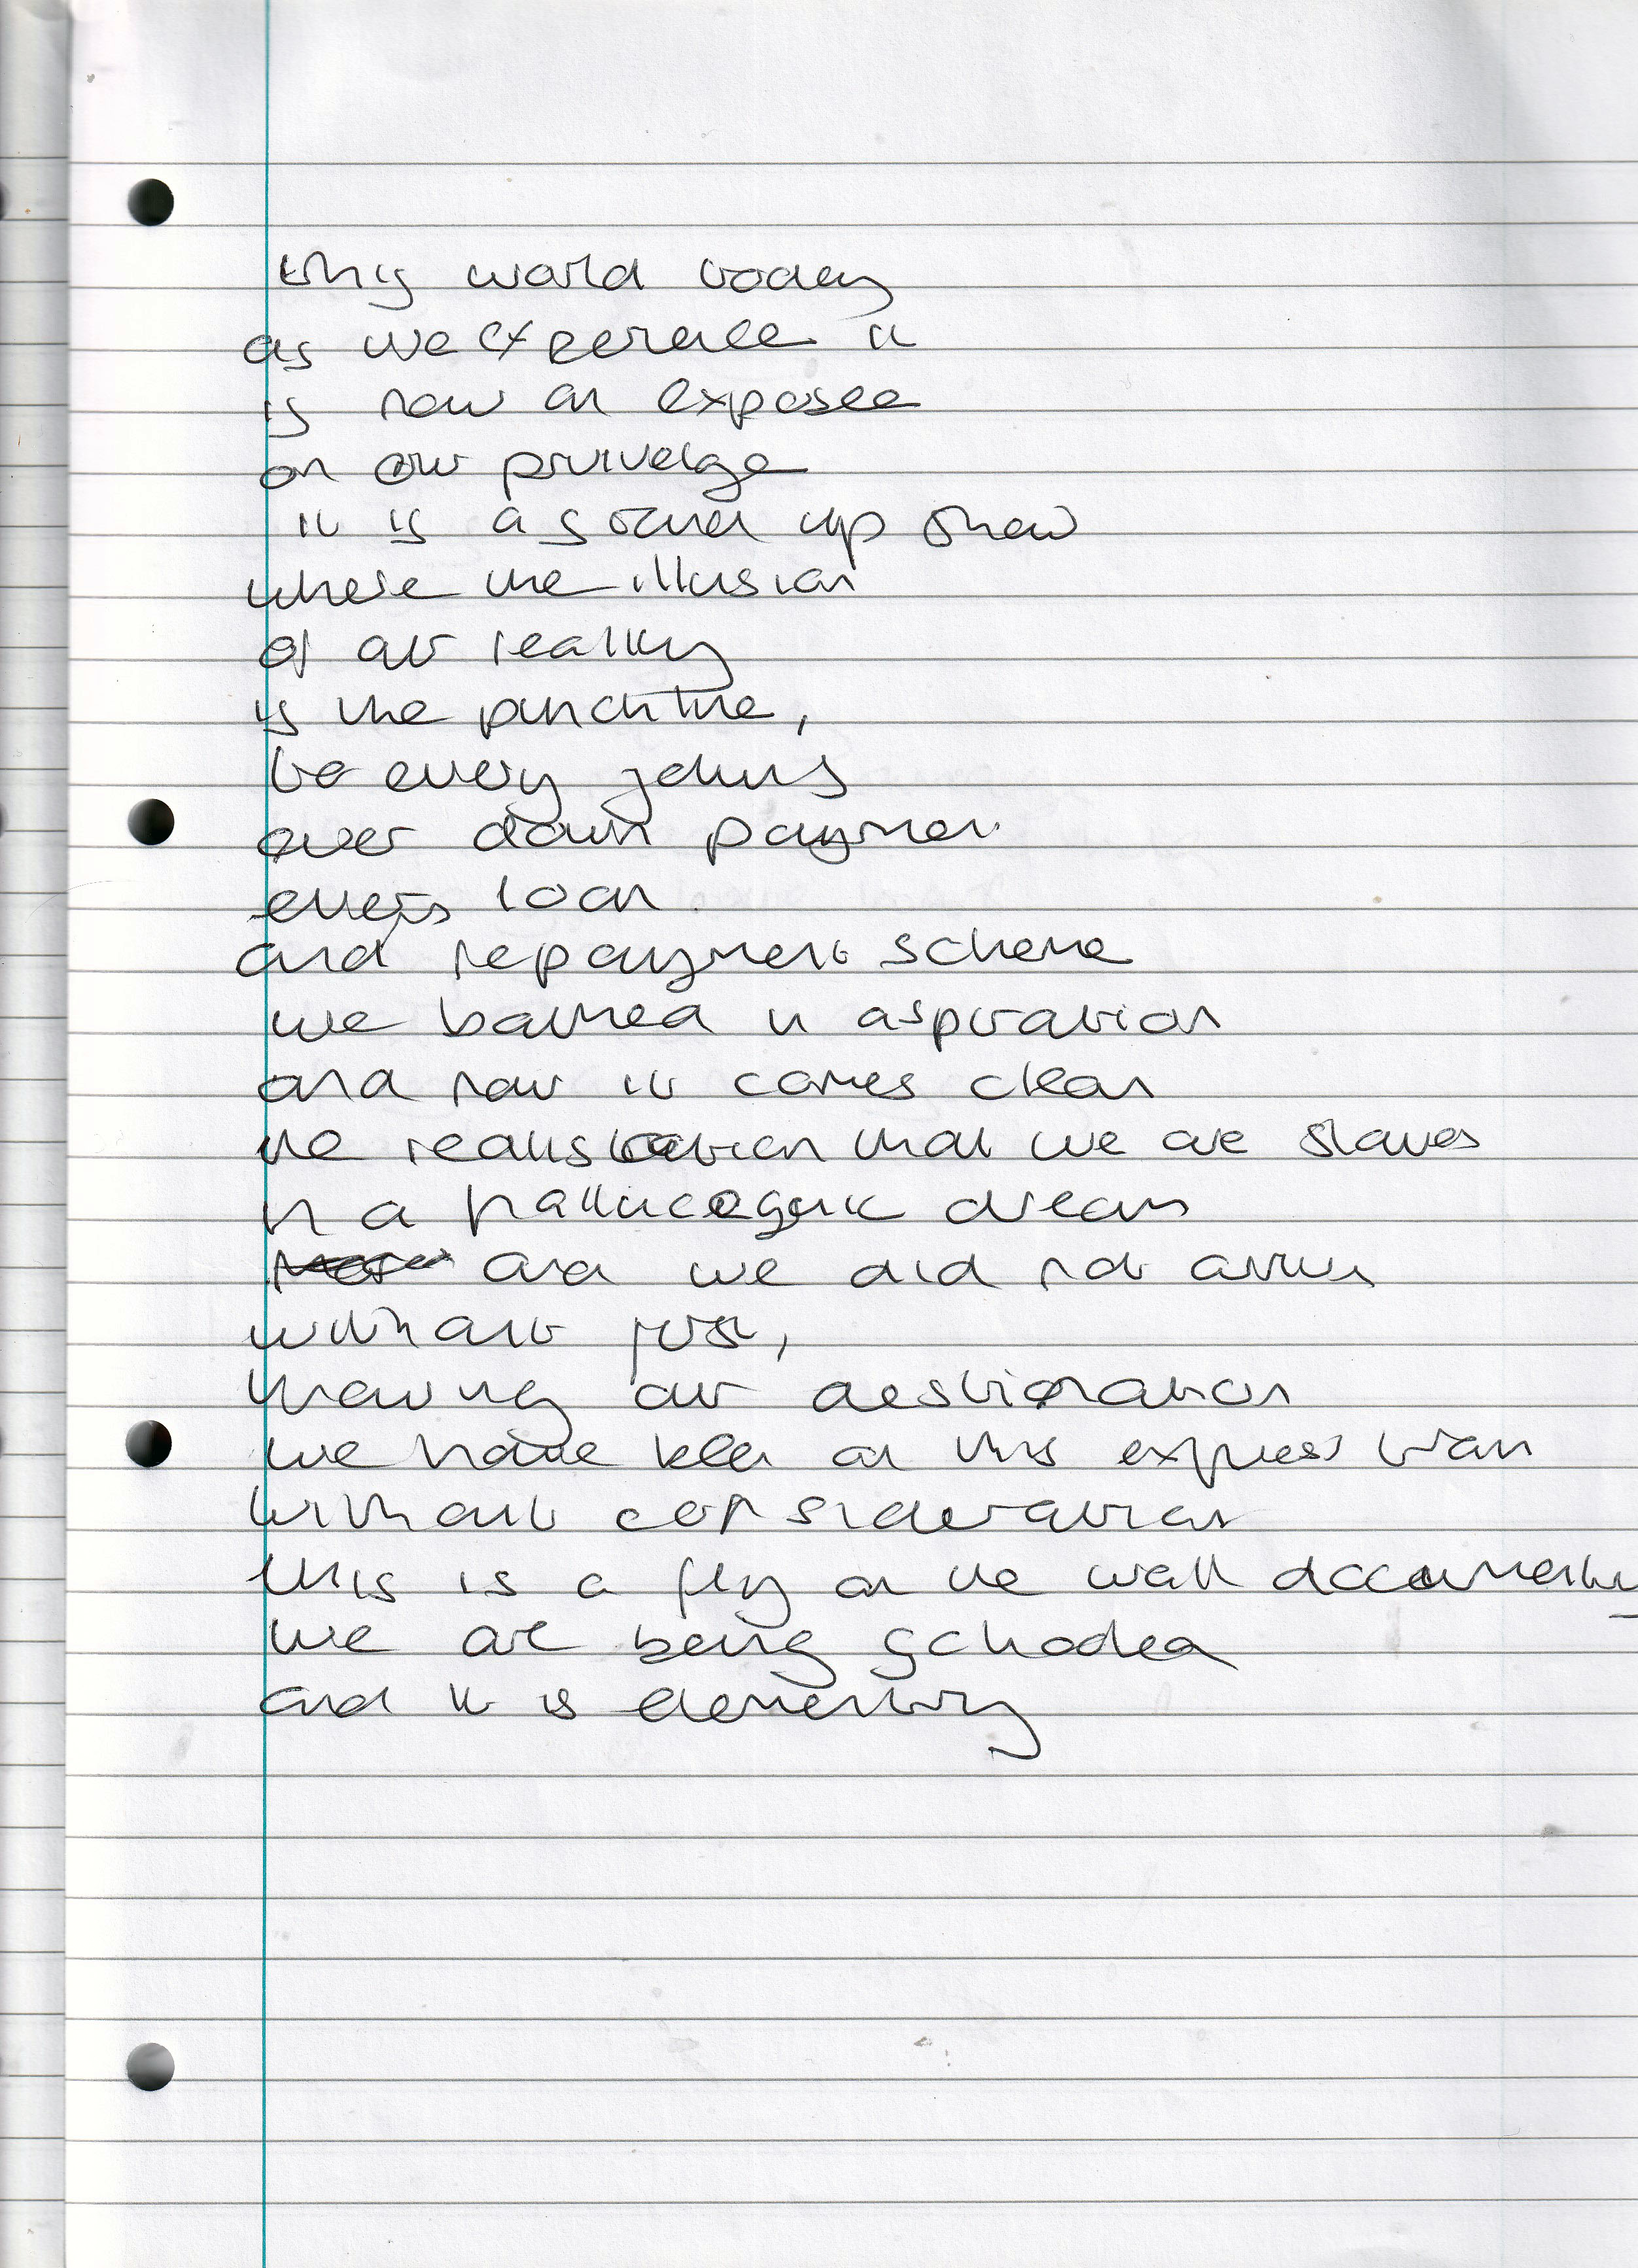 this world today
as we experience it
is now an exposee
on our privelge
it is a stand up show
where the illusion
of our reality
is the punchline,
to every
over down payment
every loan
and repayment scheme
we bathed in aspiration
and now it comes clear
the realisation that we are slaves
in a hallucogenic dream
and we did not arrive
without just,
knowing our destination
we have been on this express train
without consideration
this is a fly on the wall documentary
we are being schooled
and it is elementry